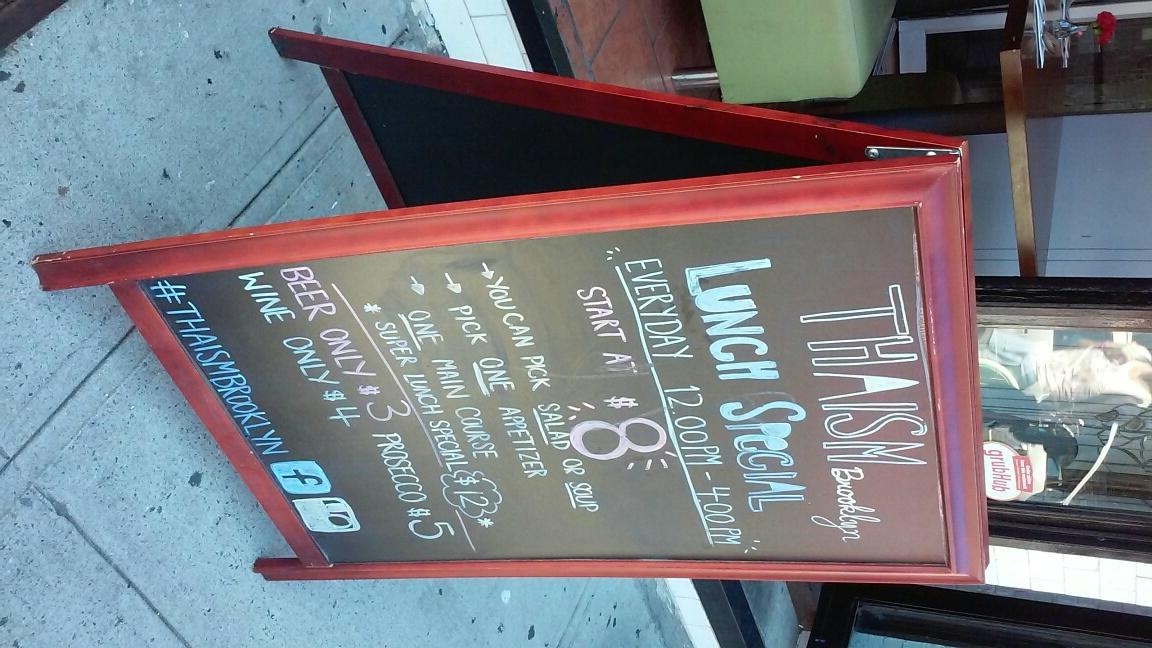 THAISM
Brooklyn
LUNCH SPECIAL
EVERYDAY 12.00PM - 4.00PM
START AT $8
→ YOU CAN PICK SALAD OR SOUP
→ PICK ONE APPETIZER
→ ONE MAIN COURSE
* SUPER LUNCH SPECIAL $12 *
BEER ONLY $3 PROSECCO $5
WINE ONLY $4
#THAISMBROOKLYN f
grubHub